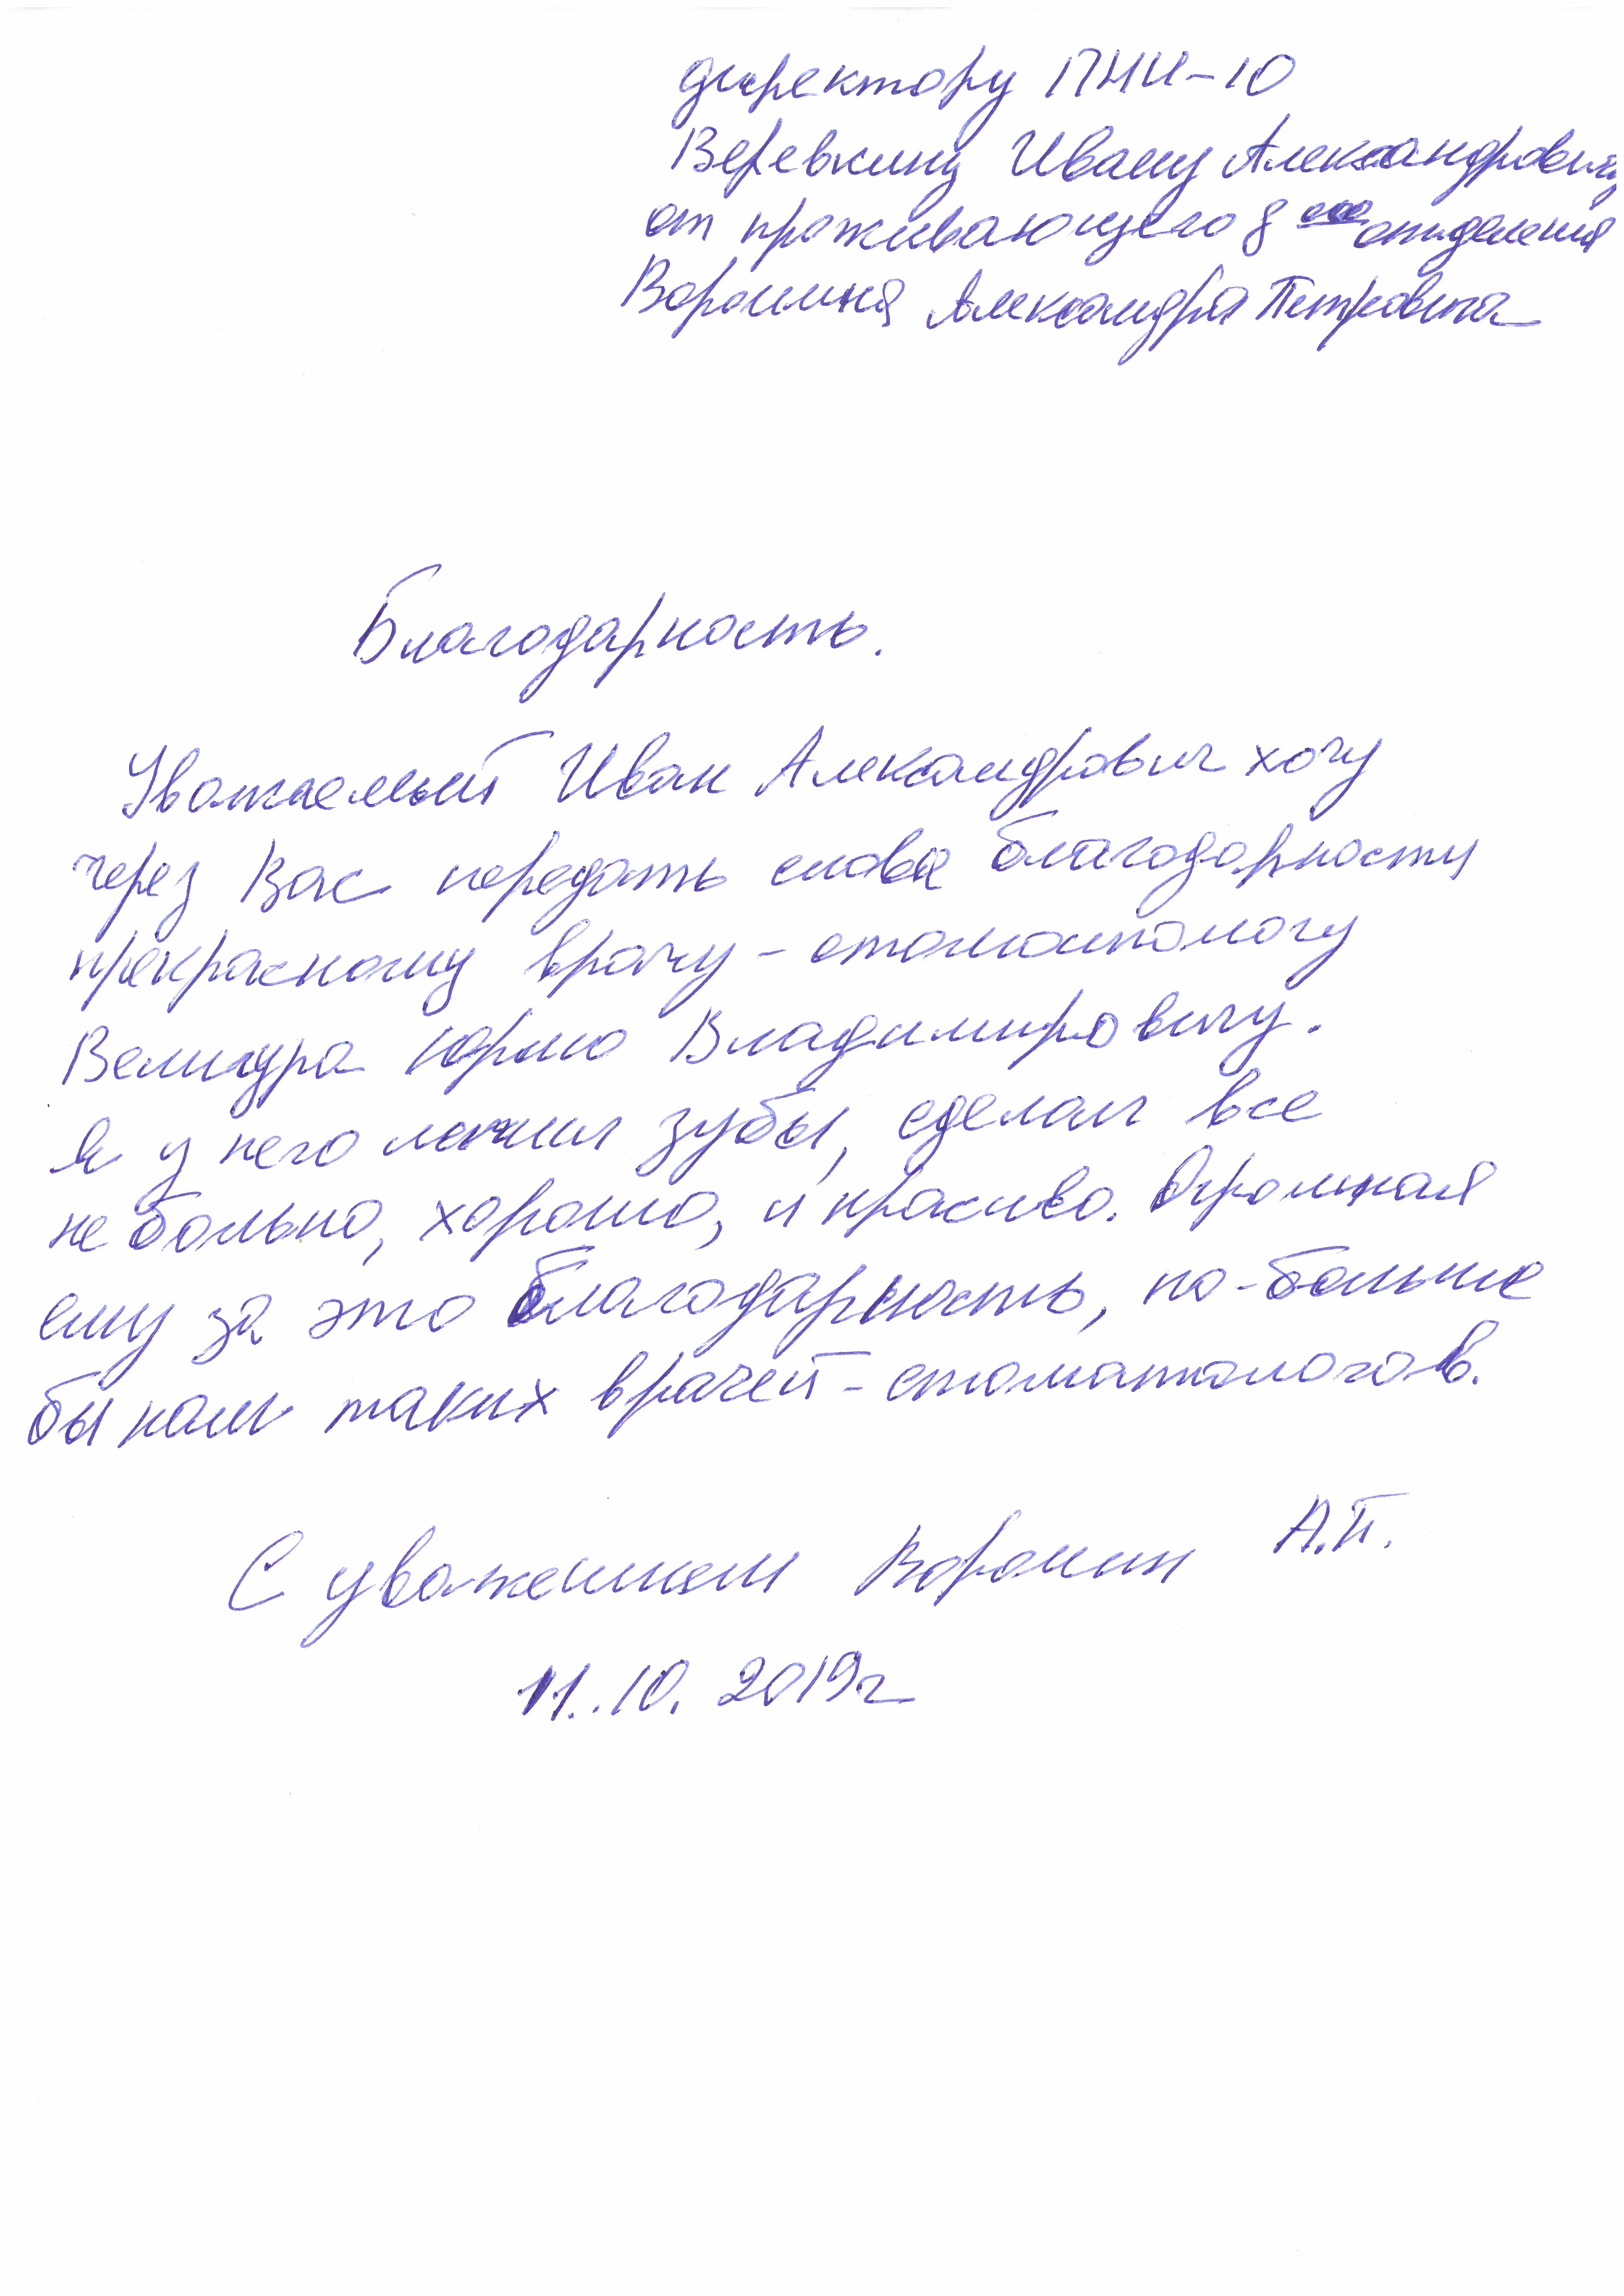 директору ПНИ-10
Веревкину Ивану Александровичу
от проживающего 8 отделения
Воронина Александра Петровича
Благодарность.
Уважаемый Иван Александрович хочу
через Вас передать слова благодарности
прекрасному врачу-стоматологу
Велигура Юрию Владимировичу.
Я у него лечил зубы, сделал все
не больно, хорошо, и красиво. Огромная
ему за это благодарность, по-больше
бы нам таких врачей-стоматологов.
С уважением Воронин А.П.
11.10.2019г